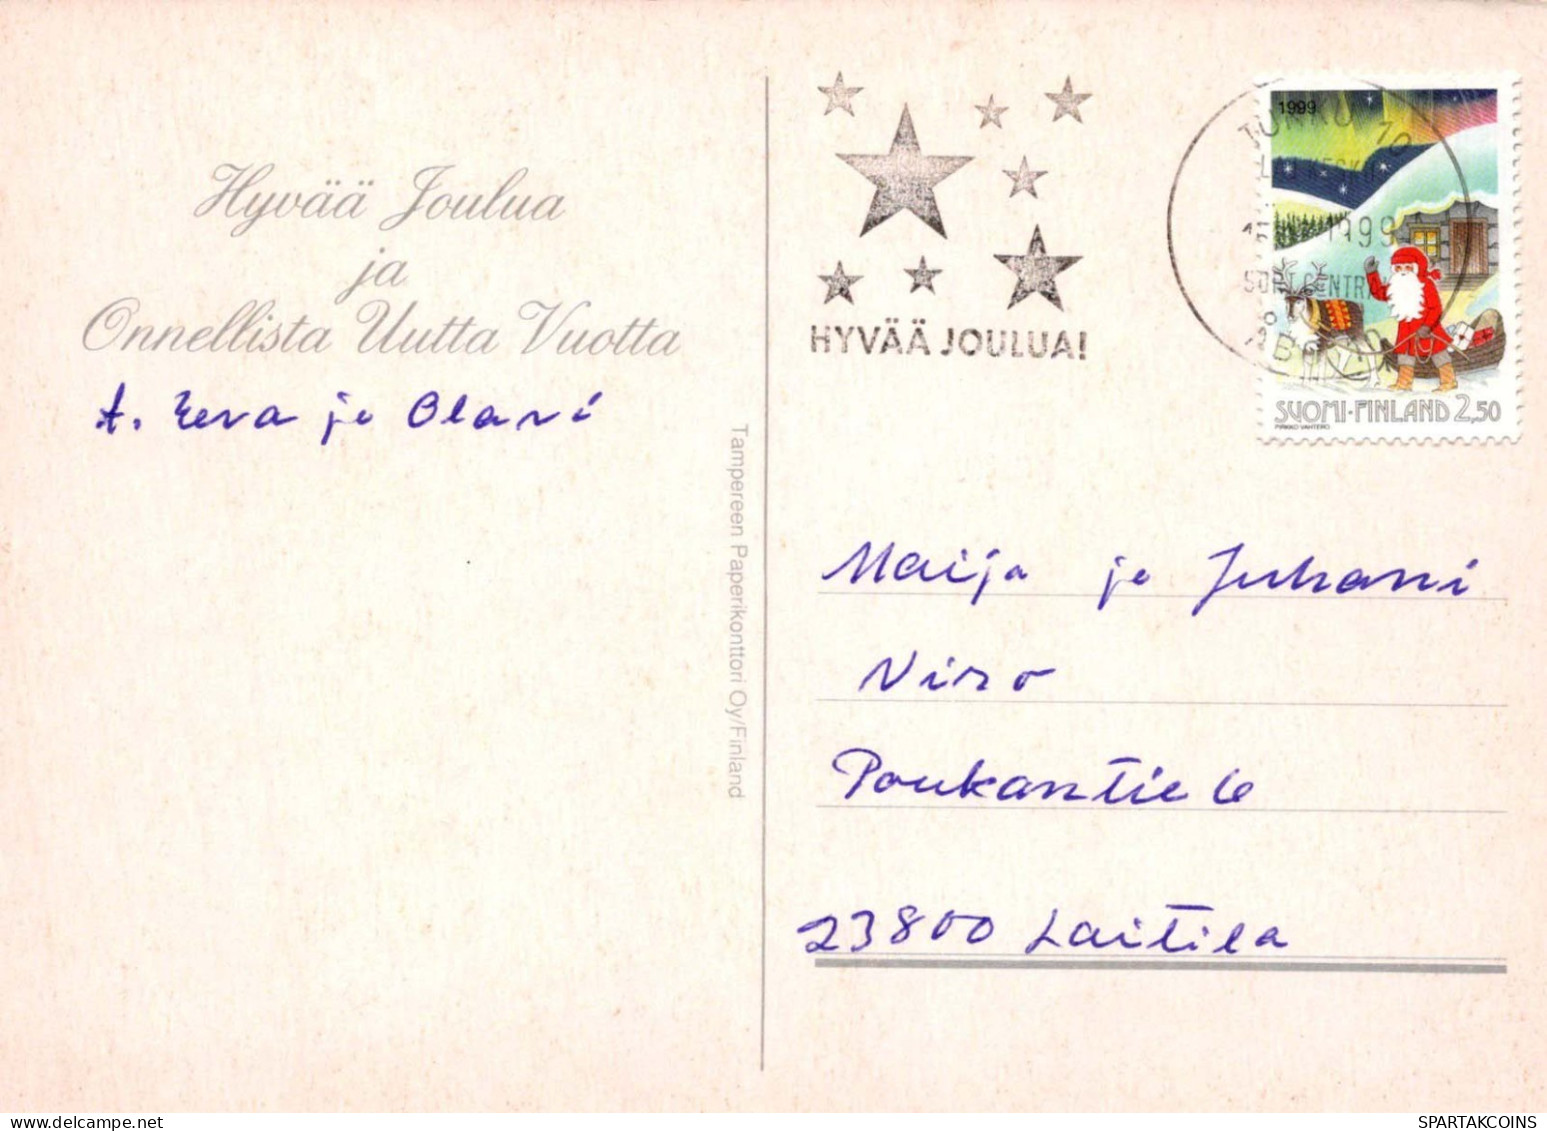 Hyvää Joulua
ja
Onnellista Uutta Vuotta
t. Eeva ja Olavi
Tampereen Paperikonttori Oy/Finland
HYVÄÄ JOULUA!
TURKU 10
1999
SORT.CENTRAL
ÅBO
1999
SUOMI·FINLAND 2,50
PIRKKO VAHTERO
Maija ja Juhani
Niro
Poukantie 6
23800 Laitila
SPARTAKCOINS